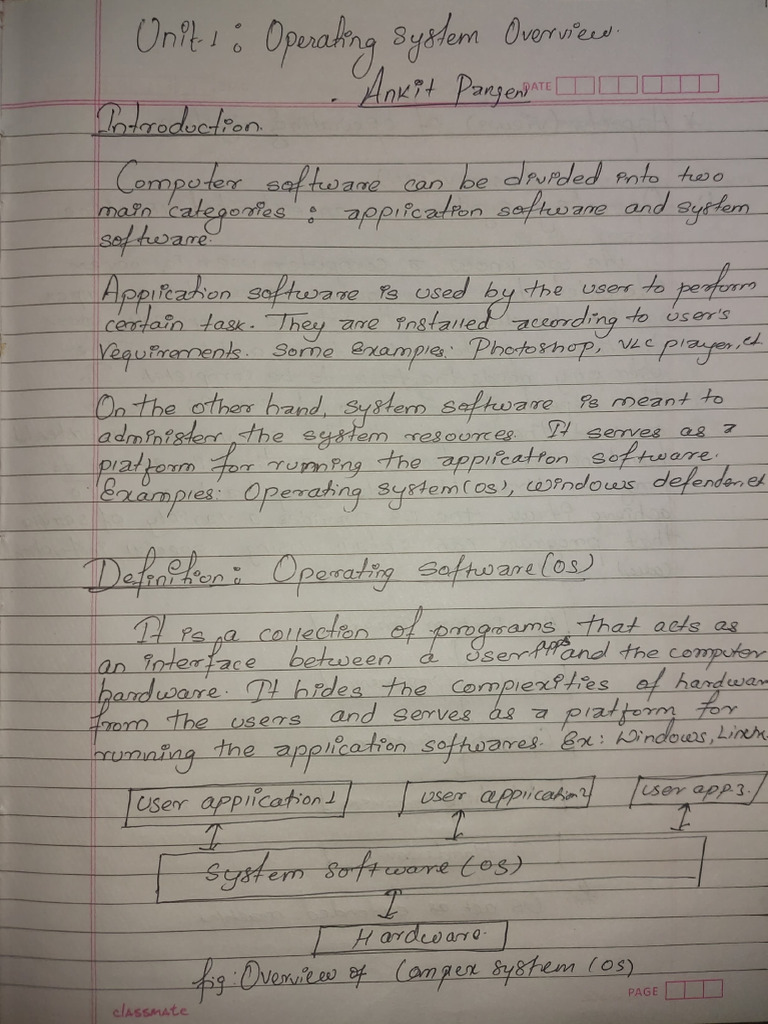 Unit-1: Operating System Overview.
- Ankit Pangeni
DATE
Introduction.
Computer software can be divided into two
main categories : application software and system
software.
Application software is used by the user to perform
certain task. They are installed according to user's
requirements. Some Examples: Photoshop, VLC player, et
On the other hand, system software is meant to
administer the system resources. It serves as a
platform for running the application software.
Examples: Operating system (OS), windows defender, et
Definition: Operating Software (OS)
It is a collection of programs that acts as
an interface between a user apps and the computer
hardware. It hides the complexities of hardwar
from the users and serves as a platform for
running the application softwares. Ex: Windows, Linux
User application 1
User application 2
User app 3.
System Software (OS)
Hardware.
fig: Overview of Compex system (OS)
PAGE
classmate